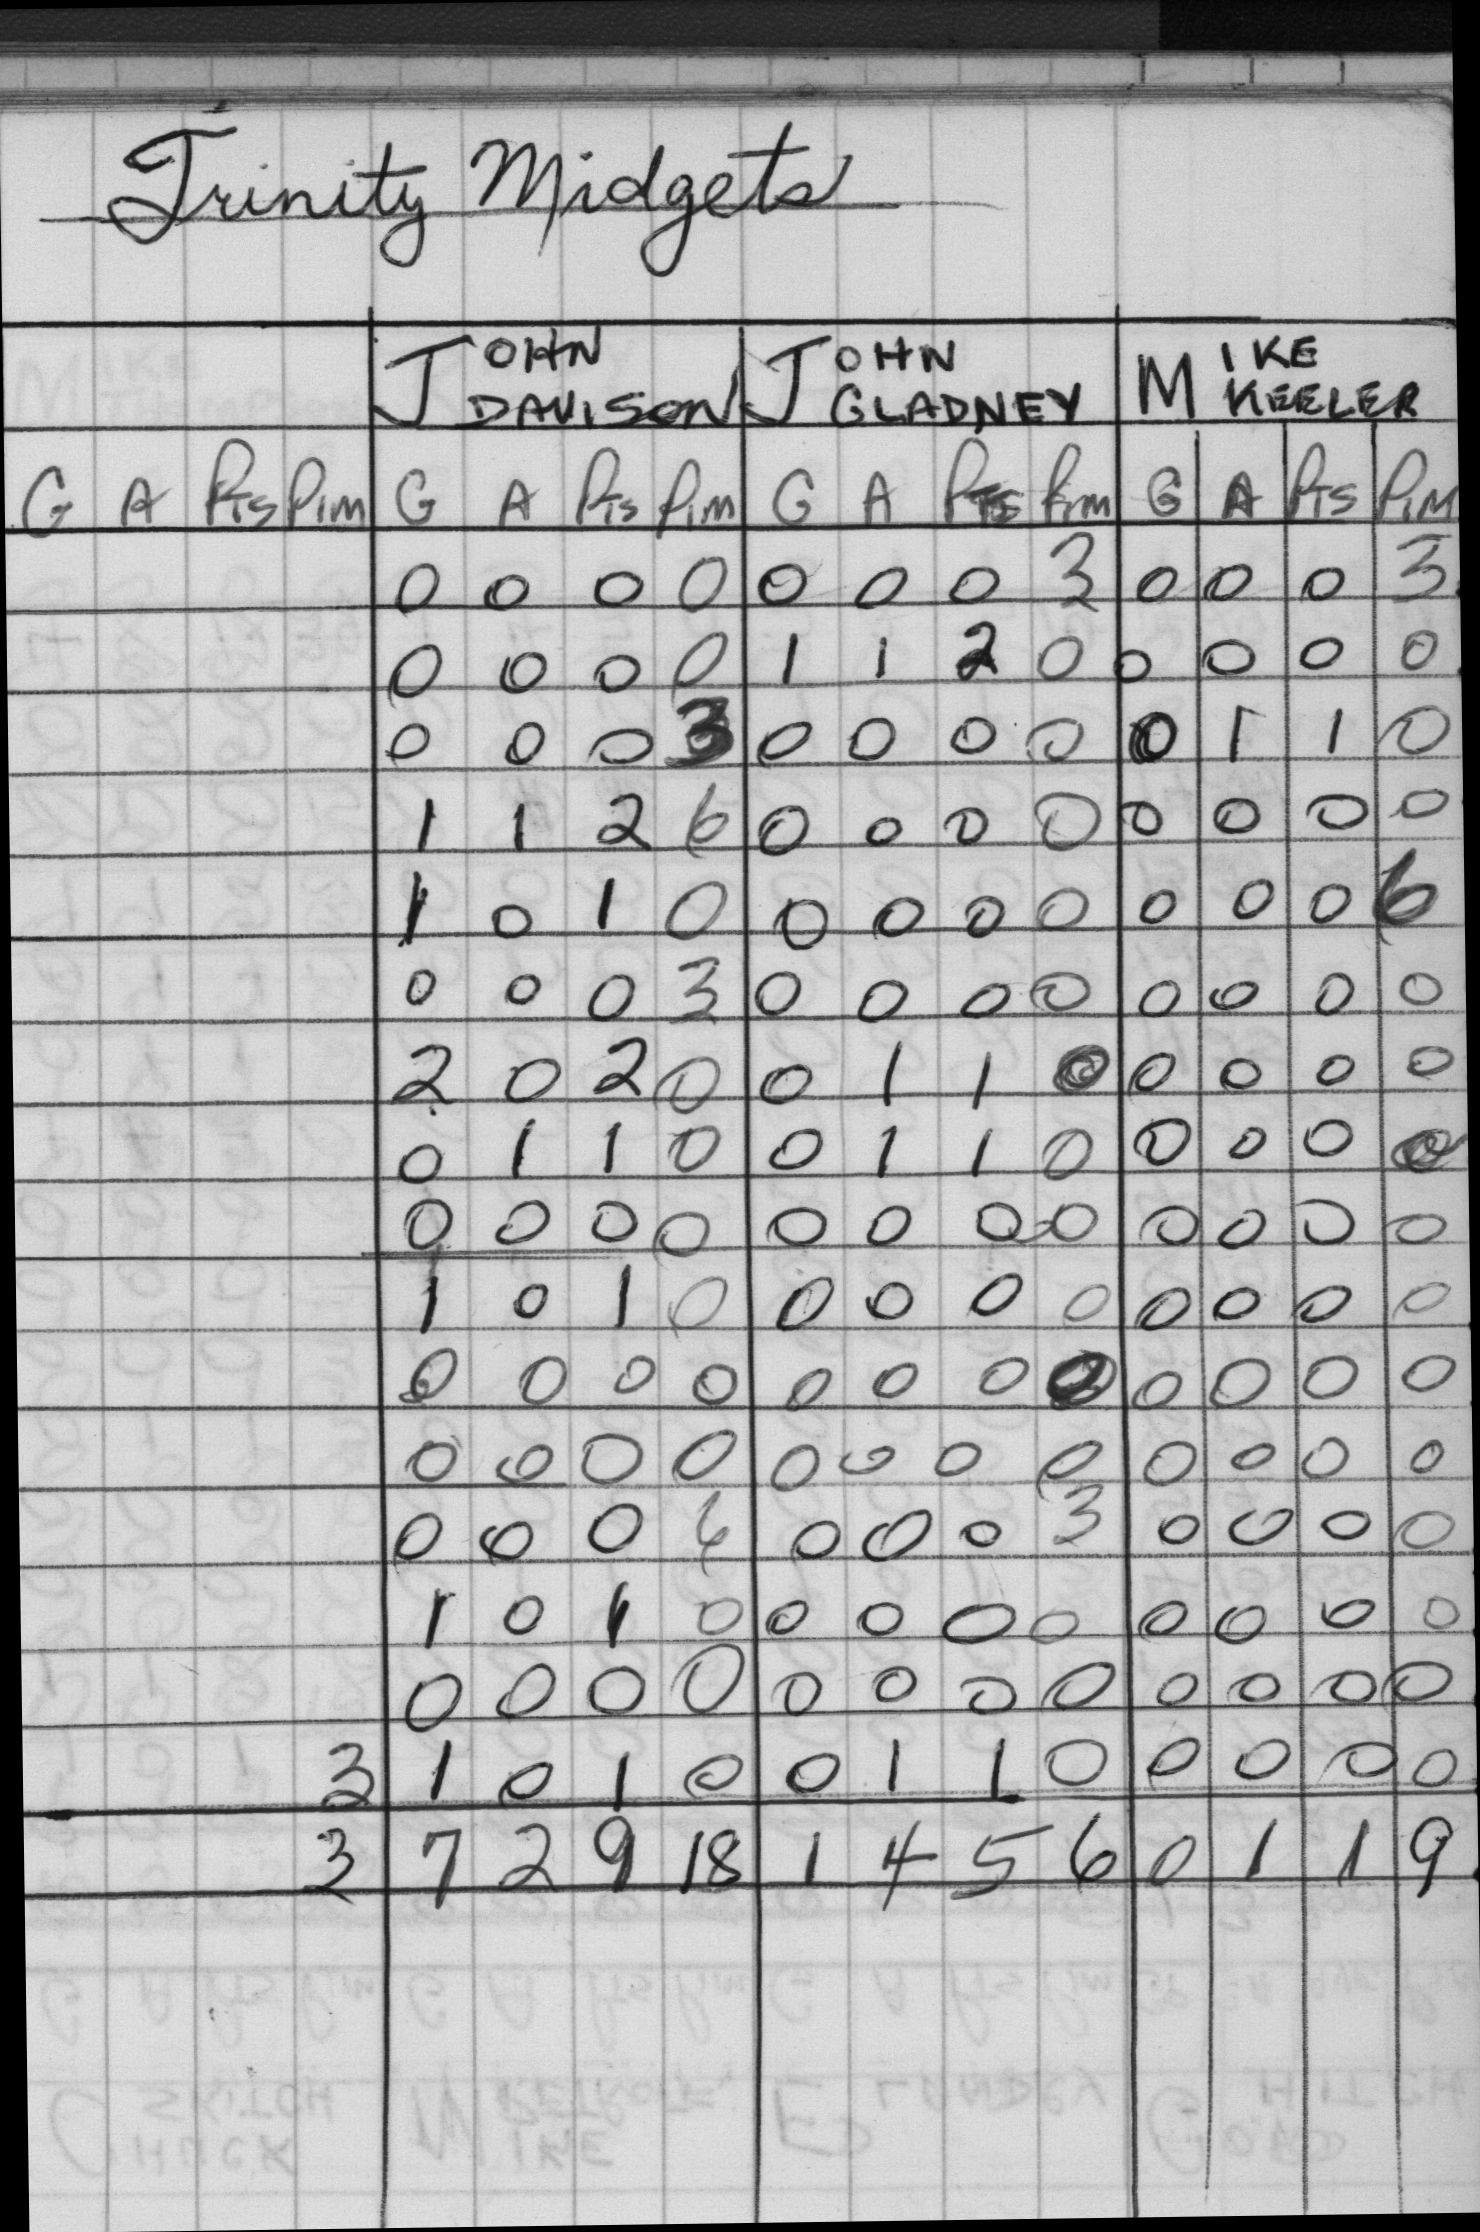 Trinity Midgets
JOHN DAVISON JOHN GLADNEY MIKE KEELER
G A Pts Pim G A Pts Pim G A Pts Pim G A Pts Pim
0 0 0 0 0 0 0 3 0 0 0 3
0 0 0 0 1 1 2 0 0 0 0 0
0 0 0 3 0 0 0 0 0 1 1 0
1 1 2 6 0 0 0 0 0 0 0 0
1 0 1 0 0 0 0 0 0 0 0 6
0 0 0 3 0 0 0 0 0 0 0 0
2 0 2 0 0 1 1 0 0 0 0 0
0 1 1 0 0 1 1 0 0 0 0 0
0 0 0 0 0 0 0 0 0 0 0 0
1 0 1 0 0 0 0 0 0 0 0 0
0 0 0 0 0 0 0 0 0 0 0 0
0 0 0 0 0 0 0 0 0 0 0 0
0 0 0 6 0 0 0 3 0 0 0 0
1 0 1 0 0 0 0 0 0 0 0 0
0 0 0 0 0 0 0 0 0 0 0 0
3 1 0 1 0 0 1 1 0 0 0 0 0
3 7 2 9 18 1 4 5 6 0 1 1 9